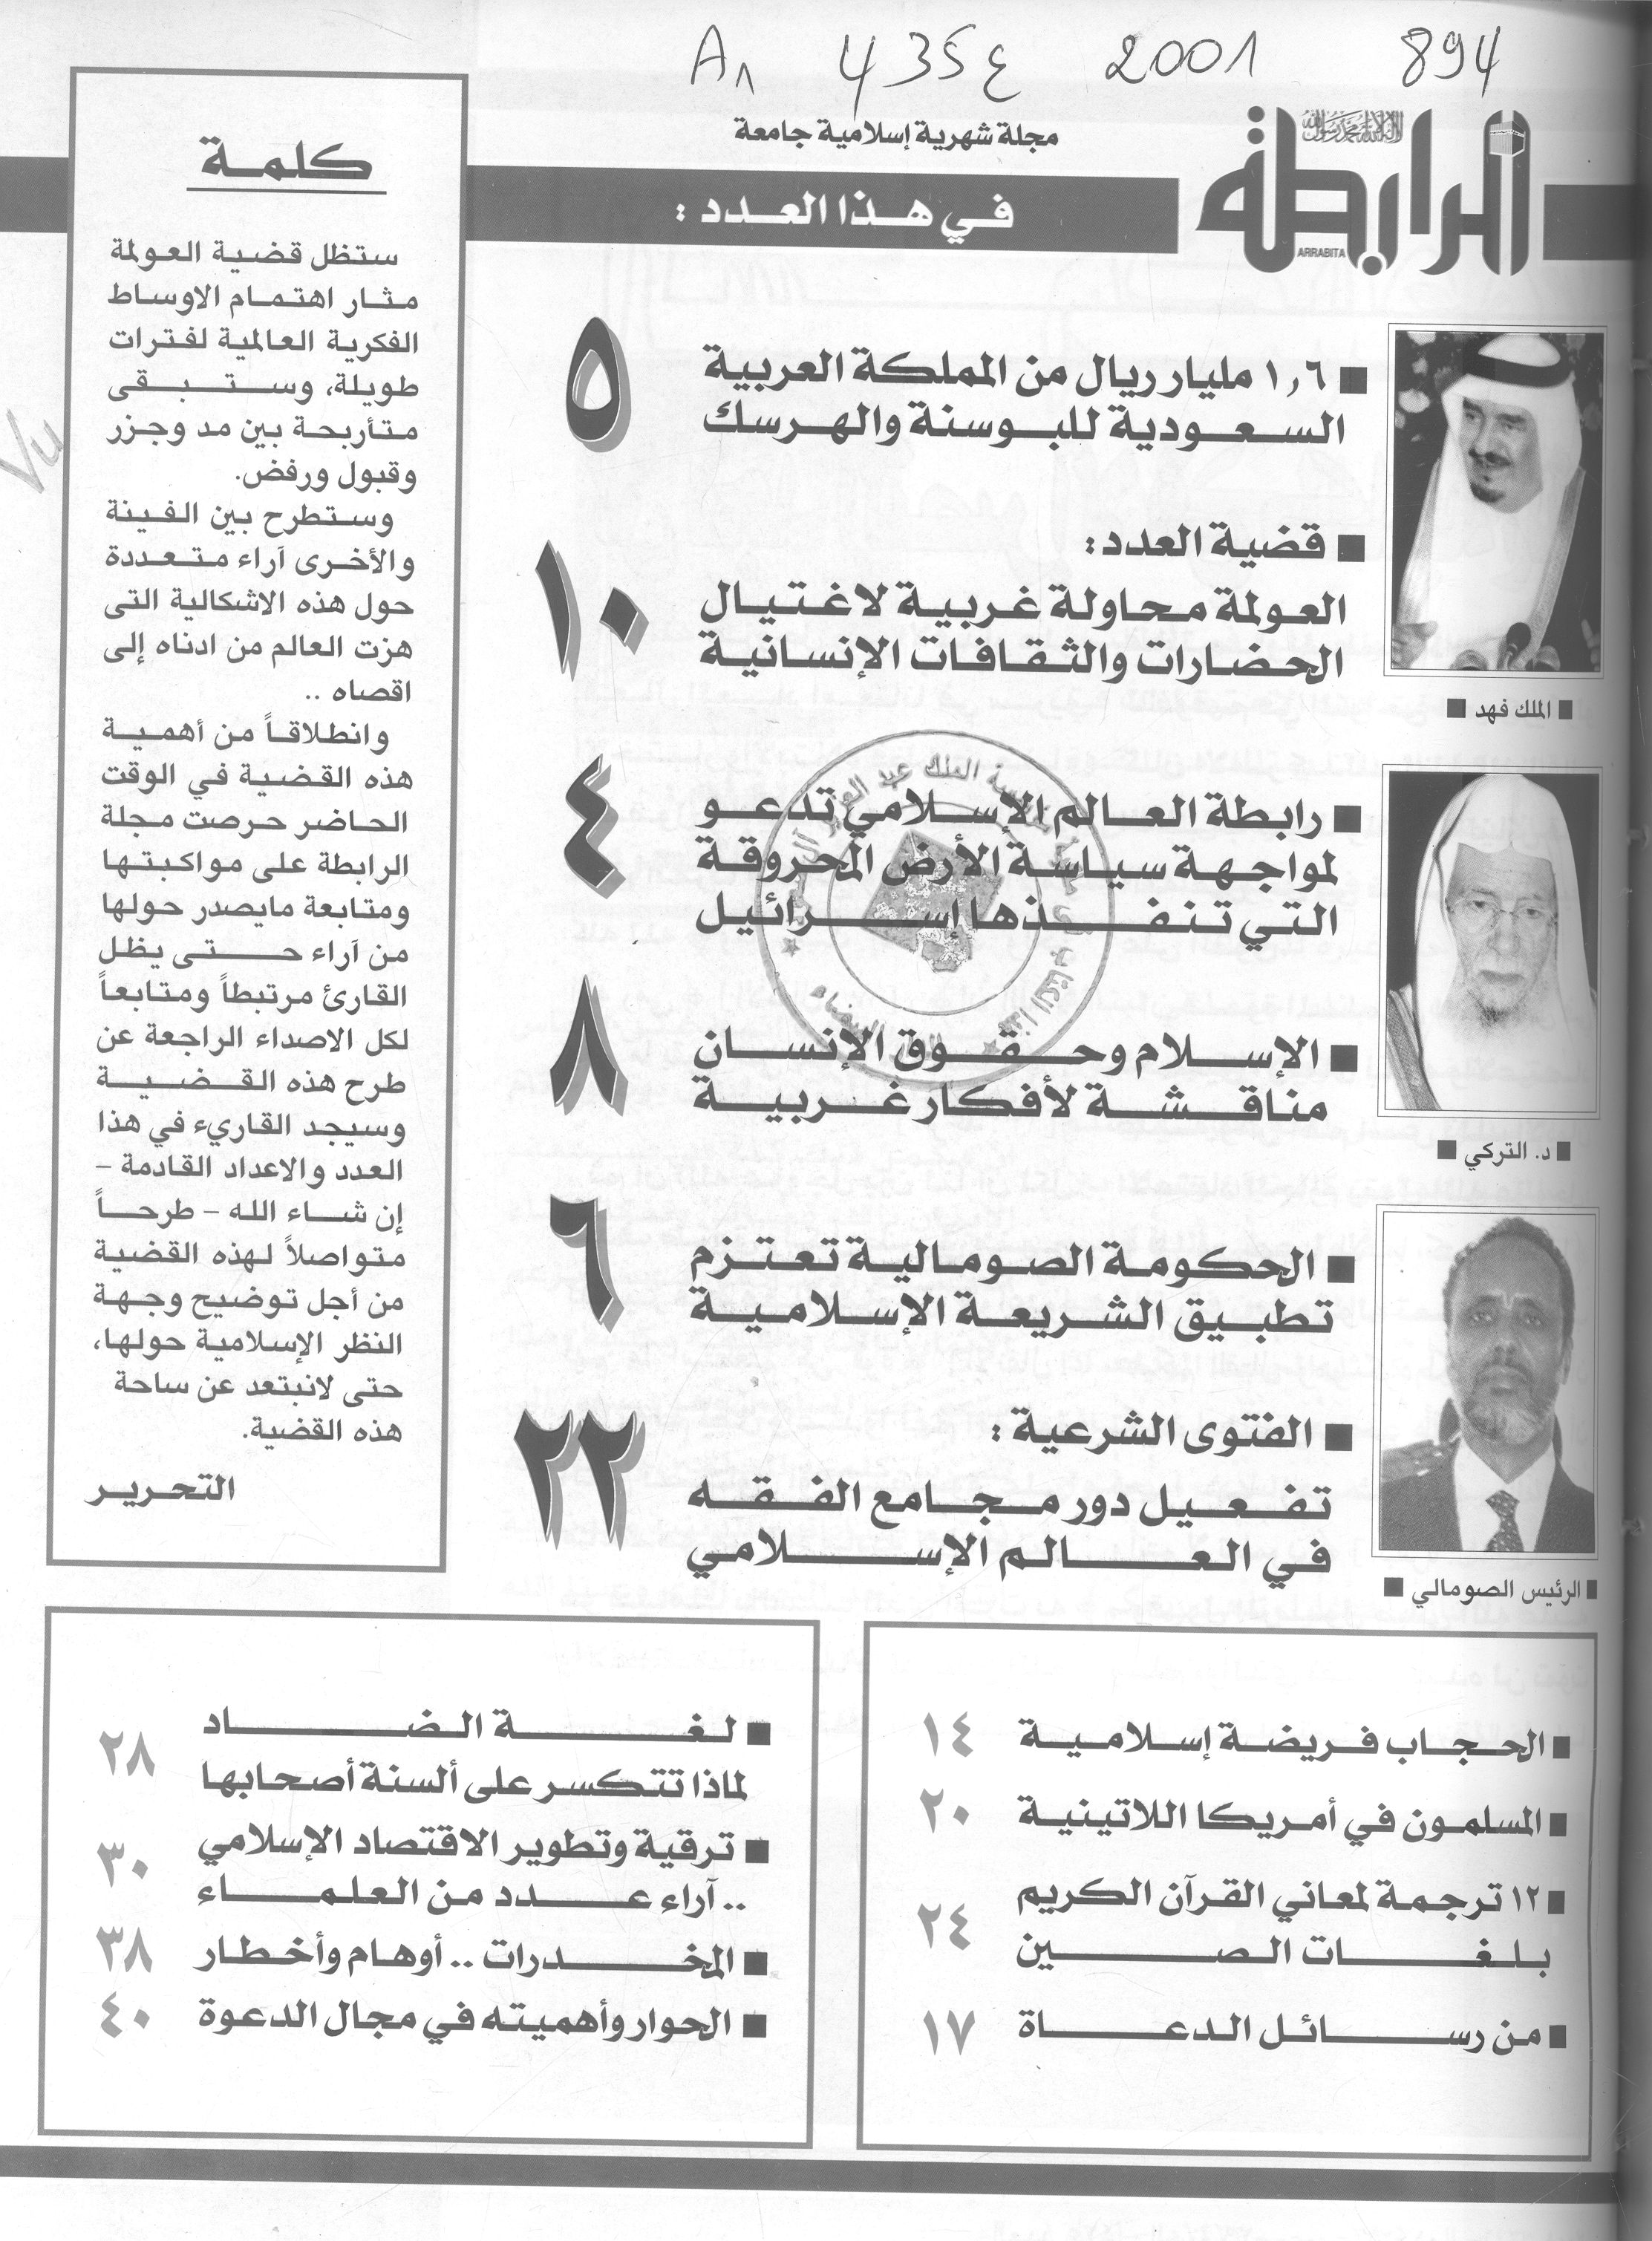 A1 435ع 2001 894
الرابطة
ARRABITA
مجلة شهرية إسلامية جامعة
في هذا العدد :
■ ١,٦ مليار ريال من المملكة العربية
السعودية للبوسنة والهرسك
٥
■ قضية العدد:
العولمة محاولة غربية لاغتيال
الحضارات والثقافات الإنسانية
١٠
■ رابطة العالم الإسلامي تدعو
لمواجهة سياسة الأرض المحروقة
التي تنفذها إسرائيل
٤
■ الإسلام وحقوق الإنسان
مناقشة لأفكار غربية
٨
■ الحكومة الصومالية تعتزم
تطبيق الشريعة الإسلامية
٦
■ الفتوى الشرعية :
تفعيل دور مجامع الفقه
في العالم الإسلامي
٢٢
■ الملك فهد ■
■ د. التركي ■
■ الرئيس الصومالي ■
كلمة
ستظل قضية العولمة
مثار اهتمام الاوساط
الفكرية العالمية لفترات
طويلة، وستبقى
متأربحة بين مد وجزر
وقبول ورفض.
وستطرح بين الفينة
والأخرى آراء متعددة
حول هذه الاشكالية التى
هزت العالم من ادناه إلى
اقصاه ..
وانطلاقاً من أهمية
هذه القضية في الوقت
الحاضر حرصت مجلة
الرابطة على مواكبتها
ومتابعة مايصدر حولها
من آراء حتى يظل
القارئ مرتبطاً ومتابعاً
لكل الاصداء الراجعة عن
طرح هذه القضية
وسيجد القاريء في هذا
العدد والاعداد القادمة -
إن شاء الله - طرحاً
متواصلاً لهذه القضية
من أجل توضيح وجهة
النظر الإسلامية حولها،
حتى لانبتعد عن ساحة
هذه القضية.
التحرير
■ الحجاب فريضة إسلامية ١٤
■ المسلمون في أمريكا اللاتينية ٢٠
■ ١٢ ترجمة لمعاني القرآن الكريم
بلغات الصين ٢٤
■ من رسائل الدعاة ١٧
■ لغة الضاد
لماذا تتكسر على ألسنة أصحابها ٢٨
■ ترقية وتطوير الاقتصاد الإسلامي
.. آراء عدد من العلماء ٣٠
■ المخدرات .. أوهام وأخطار ٣٨
■ الحوار وأهميته في مجال الدعوة ٤٠